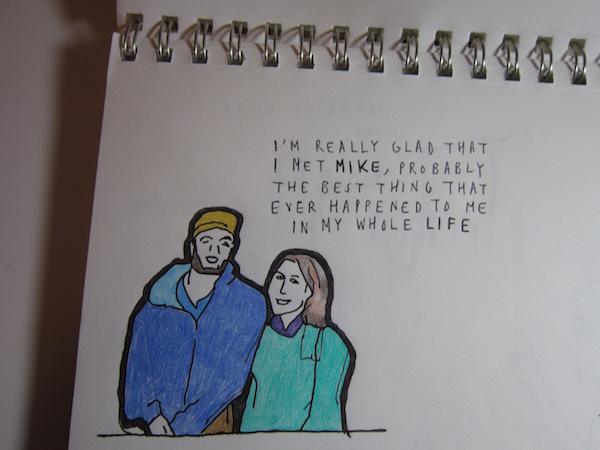 I'M REALLY GLAD THAT
I MET MIKE, PROBABLY
THE BEST THING THAT
EVER HAPPENED TO ME
IN MY WHOLE LIFE